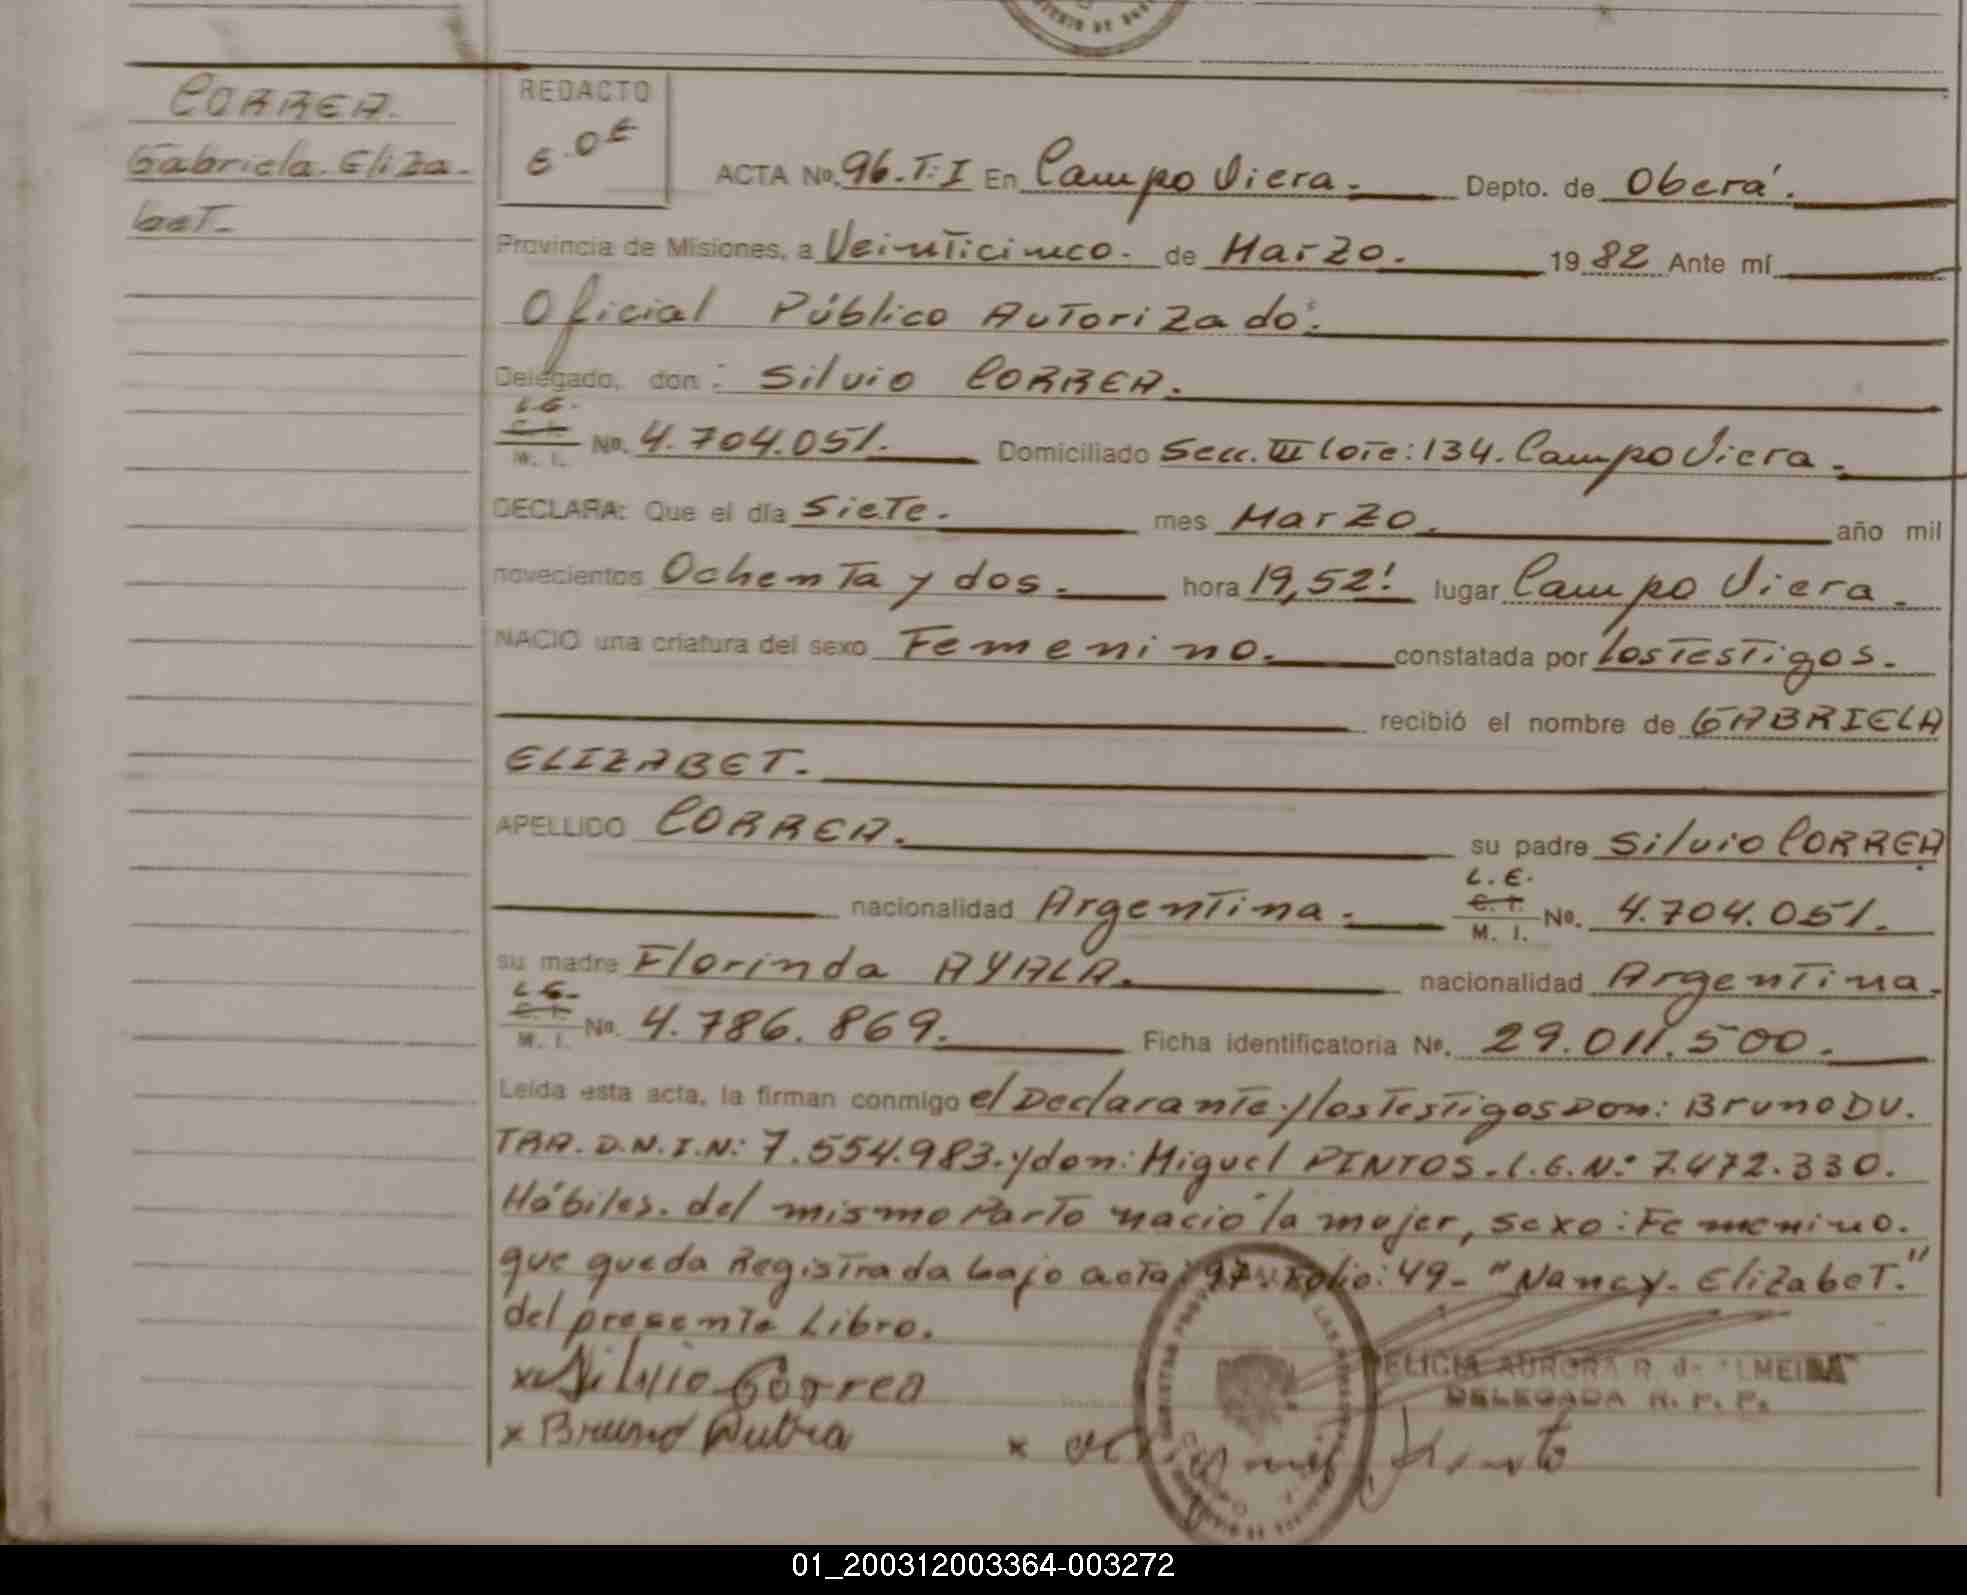 CORREA.
Gabriela. Eliza-
beT.-
REDACTO
ACTA Nº. 96.T:I En Campo Viera.- Depto. de Oberá.
Provincia de Misiones, a VeinTicinco.- de Marzo. 1982 Ante mí
Oficial Público AuTorizado:
Delegado, don: Silvio CORREA.
L.E.
C. I.
M. I. Nº. 4.704.051. Domiciliado Secc. III loTe: 134. Campo Viera.-
DECLARA: Que el día SieTe.- mes Marzo. año mil
novecientos OchenTa y dos.- hora 19,52! lugar Campo Viera.-
NACIO una criatura del sexo Femenino. constatada por los TesTigos.
recibió el nombre de GABRIELA
ELIZABET.-
APELLIDO CORREA. su padre Silvio CORREA.
nacionalidad ArgenTina.-
L.E.
C. I.
M. I. Nº. 4.704.051.
su madre Florinda AYALA. nacionalidad ArgenTina.-
L.E.-
C. I.
M. I. Nº. 4.786.869. Ficha identificatoria Nº. 29.011.500.-
Leída esta acta, la firman conmigo el DeclaranTe y los TesTigos Don: Bruno DU.
TRA. D.N.I.N: 7.554.983. y don: Miguel PINTOS. L.E.Nº 7.472.330.
Hábiles. del mismo ParTo nació la mujer, sexo: Femenino.
que queda RegisTrada bajo acTa: 97. Folio: 49- "Nancy- ElizabeT."
del presenTe Libro.
x Silvio Correa
AURORA R. de ALMEIDA
DELEGADA R. P. P.
x Bruno Dutra x
01_200312003364-003272